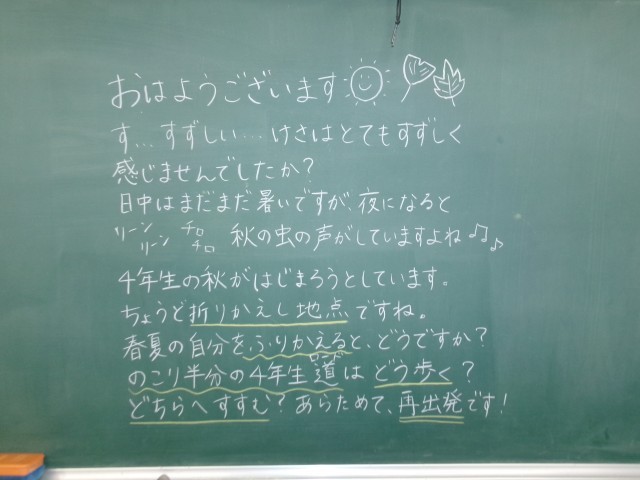 おはようございます
す…すずしい…けさはとてもすずしく
感じませんでしたか?
日中はまだまだ暑いですが、夜になると
リーン リーン チロ チロ 秋の虫の声がしていますよね♪♫♪
4年生の秋がはじまろうとしています。
ちょうど折りかえし地点ですね。
春夏の自分を、ふりかえると、どうですか?
のこり半分の4年生道はどう歩く?
ロード
どちらへすすむ?あらためて、再出発です!